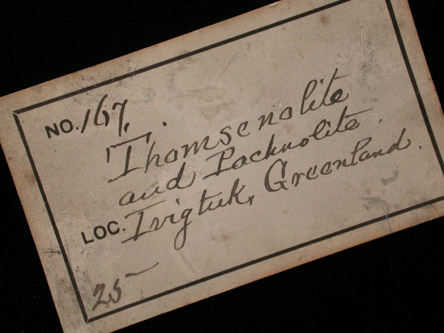 NO. 167.
Thomsenolite
and Pachnolite.
LOC. Ivigtuk, Greenland.
25-